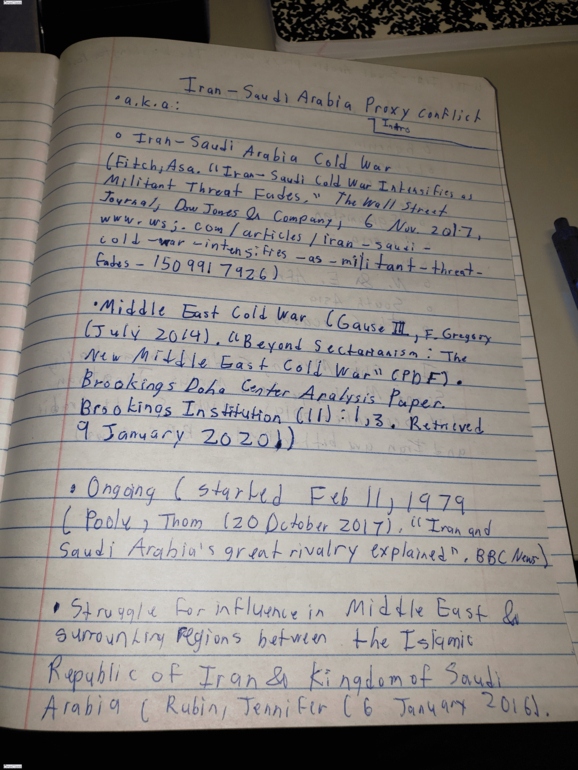 Iran-Saudi Arabia Proxy Conflict
Intro
• a.k.a:
◦ Iran-Saudi Arabia Cold War
(Fitch, Asa. "Iran-Saudi Cold War Intensifies as
Militant Threat Fades." The Wall Street
Journal, Dow Jones & Company, 6 Nov. 2017,
www.wsj.com/articles/iran-saudi-
cold-war-intensifies-as-militant-threat-
fades-1509917926)
• Middle East Cold War (Gause III, F. Gregory
(July 2014). "Beyond Sectarianism: The
New Middle East Cold War" (PDF).
Brookings Doha Center Analysis Paper.
Brookings Institution (11): 1,3. Retrieved
9 January 2020))
• Ongoing (started Feb 11, 1979
(Poole, Thom (20 October 2017). "Iran and
Saudi Arabia's great rivalry explained". BBC News)
• Struggle for influence in Middle East &
regions between the Islamic
Republic of Iran & Kingdom of Saudi
Arabia (Rubin, Jennifer (6 January 2016).